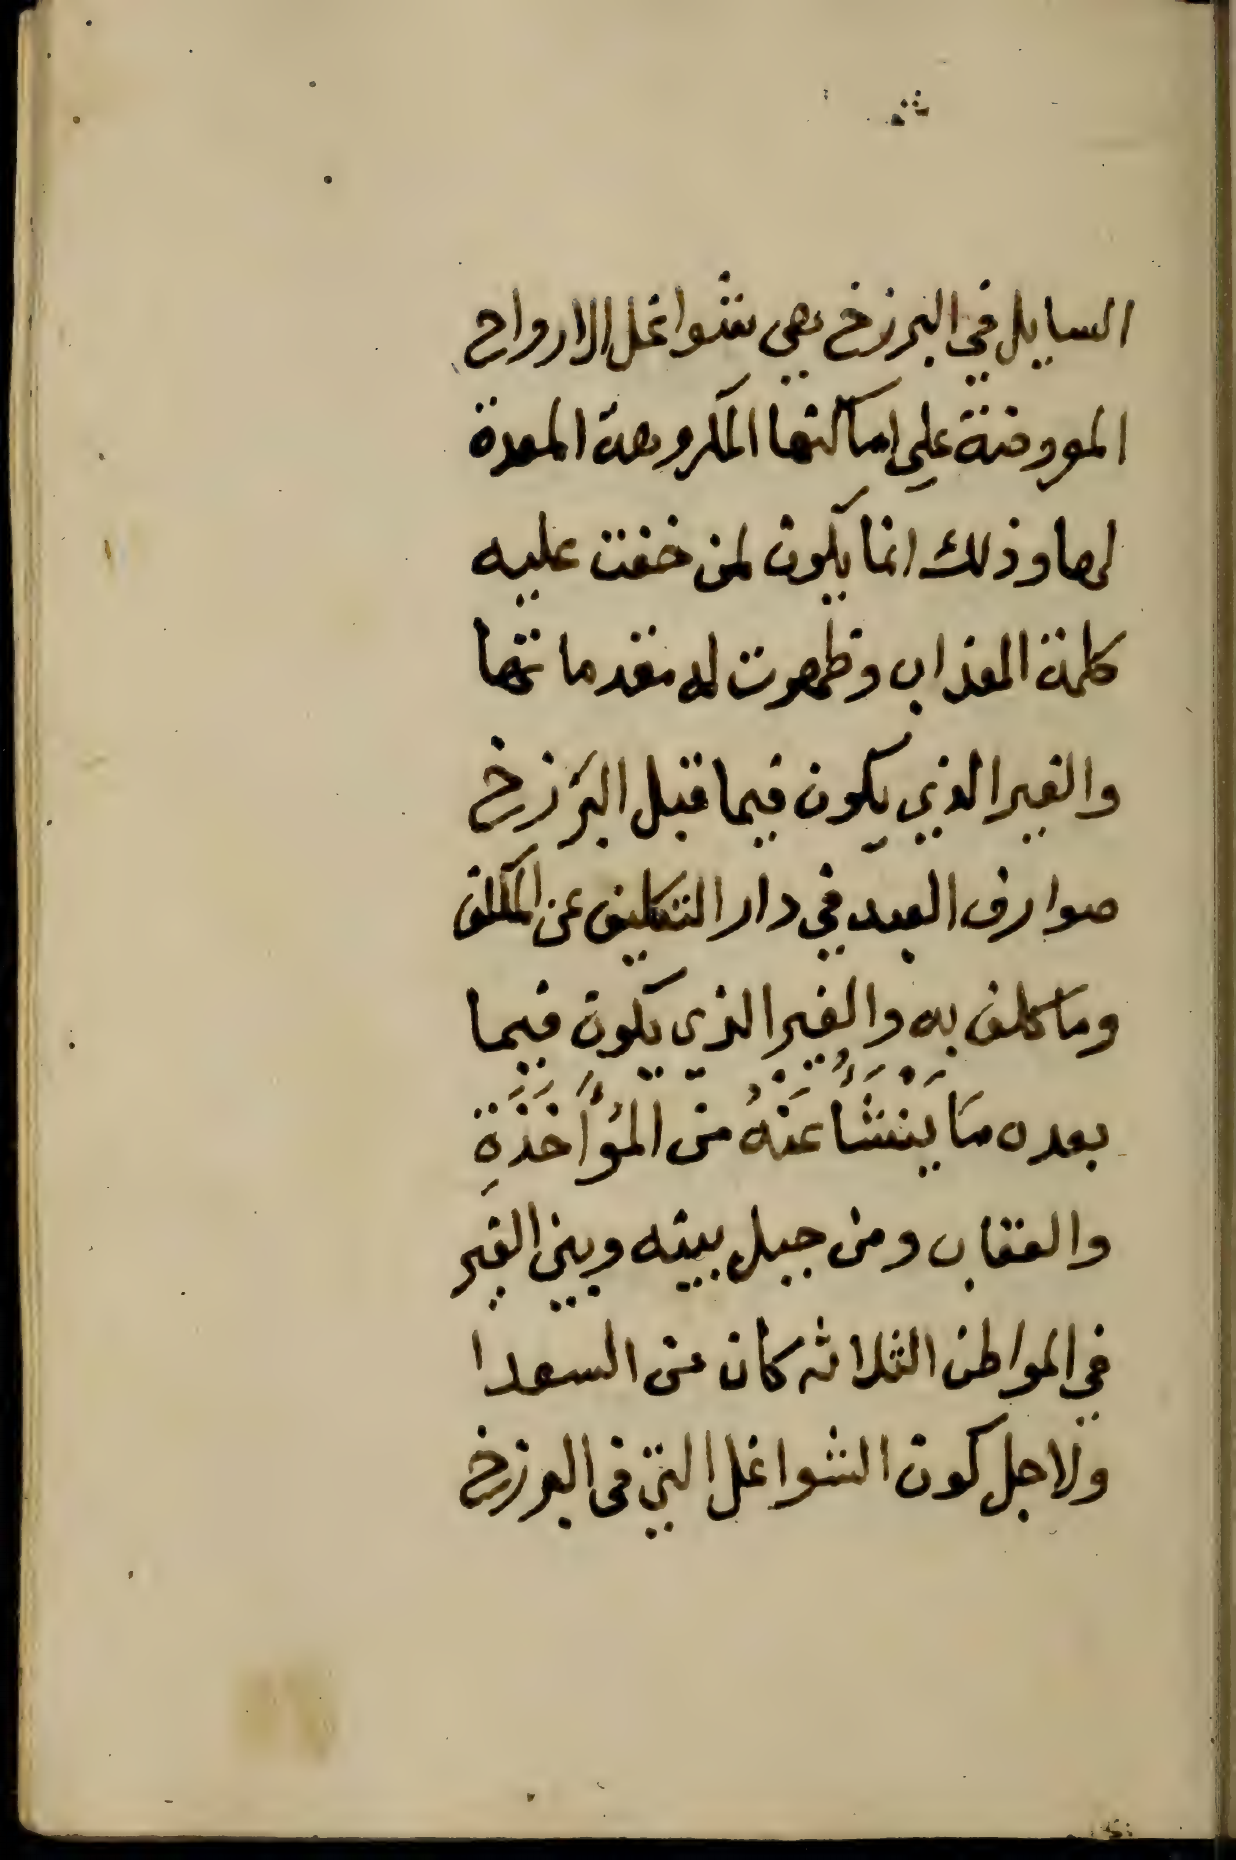 السايل في البرزخ هي شواغل الارواح
المووضة علي امالتها المكروهة المعدة
لها وذلك انما يكون لمن خفت عليه
كلمة العذاب وظهرت له مقدماتها
والغير الذي يكون فيما قبل البرزخ
صوارف العبد في دار التكليف عن المكلف
وما كلف به والغير الذي يكون فيما
بعده مَا يَنْشَأُ عَنْهُ من المُؤَاخَذَةِ
والعقاب ومن حيل بينه وبين الغير
في المواطن الثلاثه كان من السعدا
ولاجل كون الشواغل التي في البرزخ